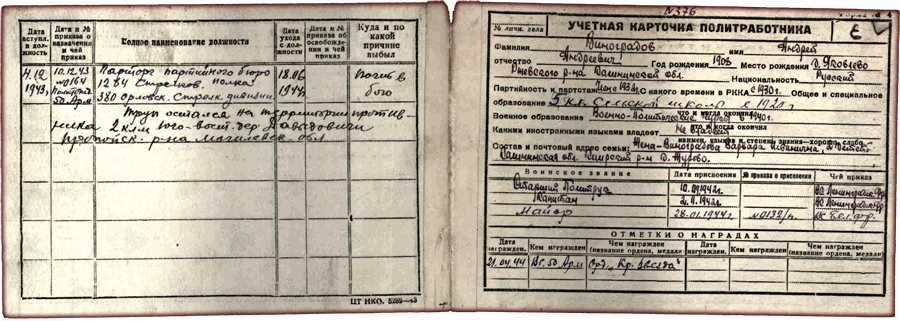 Дата вступл. в должность
Дата и № приказа о назначении и чей приказ
Полное наименование должности
Дата ухода с должн.
Дата и № приказа об освобождении и чей приказ
Куда и по какой причине выбыл
4.12 1943г.
10.12.43 №0164 Политупр. 50 Арм
Парторг партийного бюро
1264 Стрелков. полка
380 Орловск. Стрелк. дивизии.
18.06 1944г.
Погиб в бою
Труп остался на территории против-
ника 2 клм юго-вост. Давыдовичи
р-на Могилевск. обл
ЦТ НКО. 5289—43
№376
№ личн. дела
УЧЕТНАЯ КАРТОЧКА ПОЛИТРАБОТНИКА
Е
Фамилия Виноградов имя Андрей
отчество Андреевич Год рождения 1908 Место рождения д. Яковлево
Ржевского р-на Калининской обл. Национальность Русский
Партийность и партстаж с какого времени в РККА с 1930г. Общее и специальное
образование 5 кл. Сельской школы в 1920г
что и когда окончил
Военное образование Военно-Политические курсы в 1940г.
что и когда окончил
Какими иностранными языками владеет Не владеет
наимен. языков и степень знания—хорошо, слабо
Состав и почтовый адрес семьи: Жена-Виноградова Варвара 2 детей
Калининская обл. р-н д.
Воинское звание
Дата присвоения
№ приказа о присвоении
Чей приказ
Старший Политрук 10.09.1942г. ВС Ленинградск. фр.
Капитан 1942г. ВС Ленинградск. фр.
Майор 28.01.1944г. №0132/п. ВС Бел. фр.
ОТМЕТКИ О НАГРАДАХ
Дата награжден.
Кем награжден
Чем награжден (название ордена, медали)
Дата награжден.
Кем награжден
Чем награжден (название ордена, медали)
21.04.44 ВС. 50 Арм Орд. „Кр. Звезда"